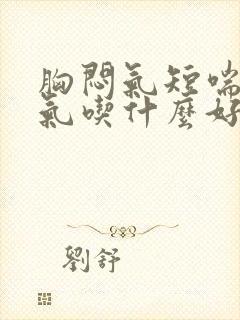 胸悶氣短喘
氣喫什麼好
劉舒